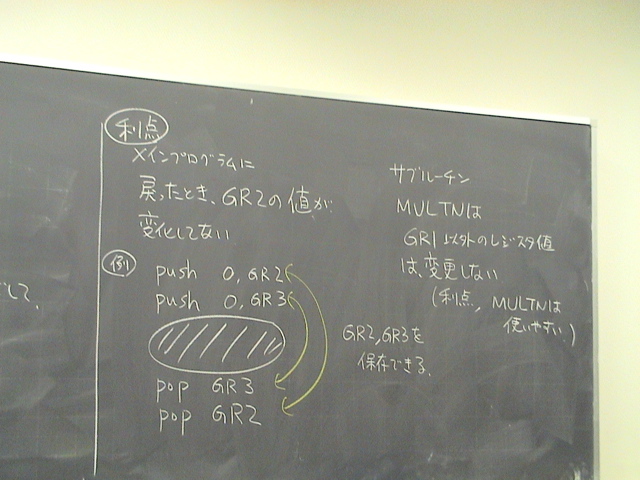 利点
メインプログラムに
戻ったとき、GR2の値が
変化してない
例
push 0,GR2
push 0,GR3
pop GR3
pop GR2
GR2,GR3を
保存できる.
サブルーチン
MULTNは
GR1以外のレジスタ値
は、変更しない
(利点, MULTNは
使いやすい.)
して.